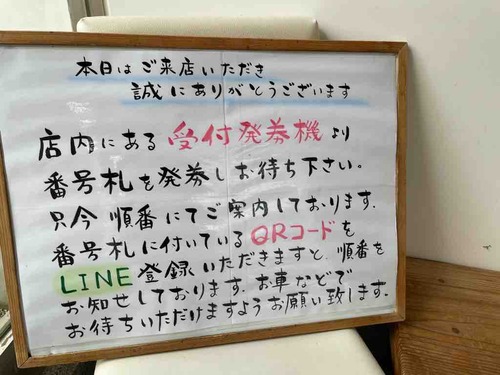 本日はご来店いただき
誠にありがとうございます
店内にある受付発券機より
番号札を発券しお待ち下さい。
只今順番にてご案内しております。
番号札に付いているQRコードを
LINE登録いただきますと、順番を
お知せしております。お車などで
お待ちいただけますようお願い致します。